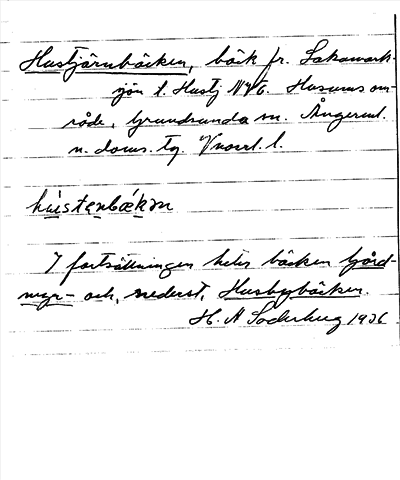 Hustjärnbäcken, bäck fr. Lakamark-
sjön t. Hustj NVG. Husums om-
råde, Grundsunda sn. Ångerml.
n. doms. tg. Vnorrl. l.
hustenbækən
I fortsättningen heter bäcken Gjård-
myr- och, nederst, Husbybäcken.
H. A Söderberg 1936